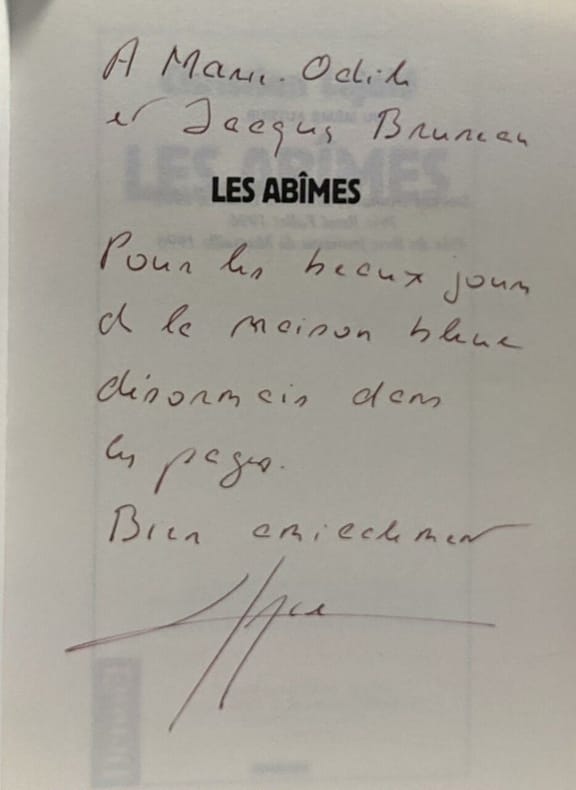 A Marie-Odile
et Jacques Bruneau
LES ABÎMES
Pour les beaux jours
de la maison bleue
désormais dans
les pages.
Bien amicalement